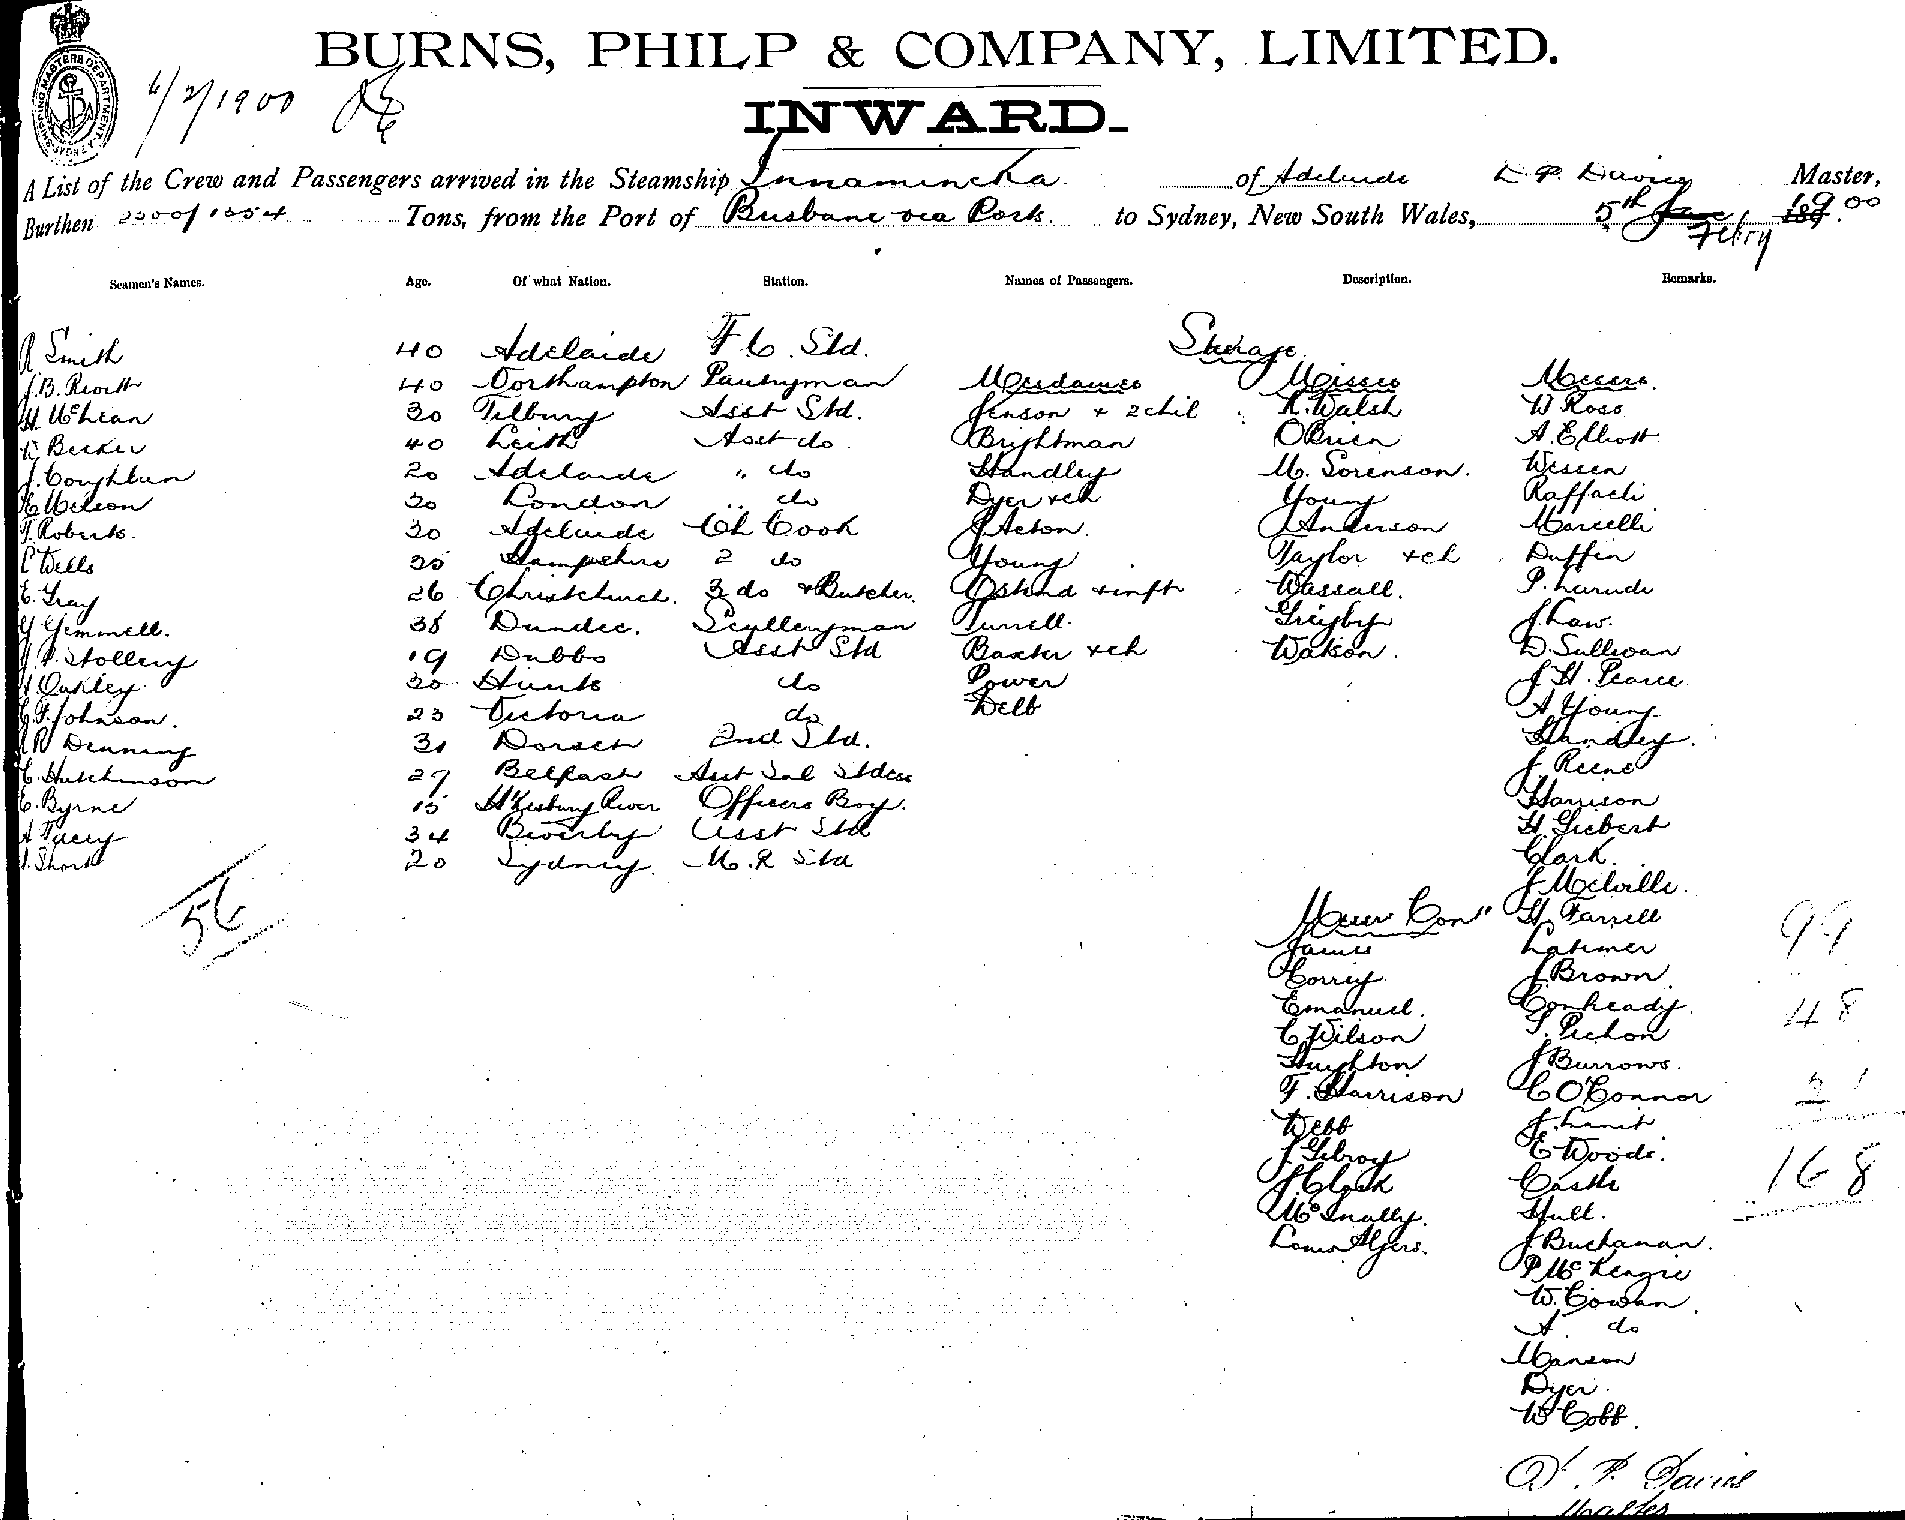 BURNS, PHILP & COMPANY, LIMITED.
6/2/1900
INWARD.
A List of the Crew and Passengers arrived in the Steamship Innamincka of Adelaide D. P. Davies Master,
Burthen Tons, from the Port of Brisbane via Ports. to Sydney, New South Wales, 5th Febry 1900
Seamen's Names. Age. Of what Nation. Station. Names of Passengers. Description. Remarks.
Steerage
R Smith 40 Adelaide F C. Std.
40 Northampton Pantryman Mesdames Misses Messrs.
H McLean 30 Tilbury Asst Std. Jenson + 2 chil K. Walsh W Ross
Becker 40 Leith Asst do Brightman OBrien A. Elliott
J. Coughlan 20 Adelaide " do Handley M. Sorenson. Wessen
30 London " do Dyer + ch Young Raffaeli
F. Roberts. 30 Adelaide Ch Cook J Acton. J Anderson Marcelli
Wells Hampshire 2 do Young Taylor + ch Duffin
E. Gray 26 Christchurch. 3 do + Butcher. Ostend + inft Wassall. P. Larude
Gemmell. 38 Dundee. Sculleryman Turrell. Greigby J. Law.
Stollery 19 Dubbo Asst Std Baxter + ch Watson. D. Sullivan
Oakley 30 Hunts do Power J H. Pearce
F. Johnson. 23 Victoria do Webb A. Young
Denning 31 Dorset 2nd Std. Handley.
E. Hutchinson 27 Belfast Asst Sal Stdess J. Reene
E. Byrne 15 H'kesbury River Officers Boy. Harrison
A Tacey 34 Beverley Asst Std H. Giebert
Short 20 Sydney. M. R Std Clark.
J Melville.
56 Messrs Con" H. Farrell 99
James Latimer
Correy J Brown
Emanuel. Conheady. 48
C Wilson T. Pichon
Haughton J Burrows.
F. Harrison C O'Connor 21
Webb
J Gilroy E Woods.
J. Clark Castle 168
McInally. Hull.
Louis Algers. J Buchanan.
P McKenzie
W. Cowan.
A. do
Manson
Dyer.
W Cobb.
D. P. Davies
Master